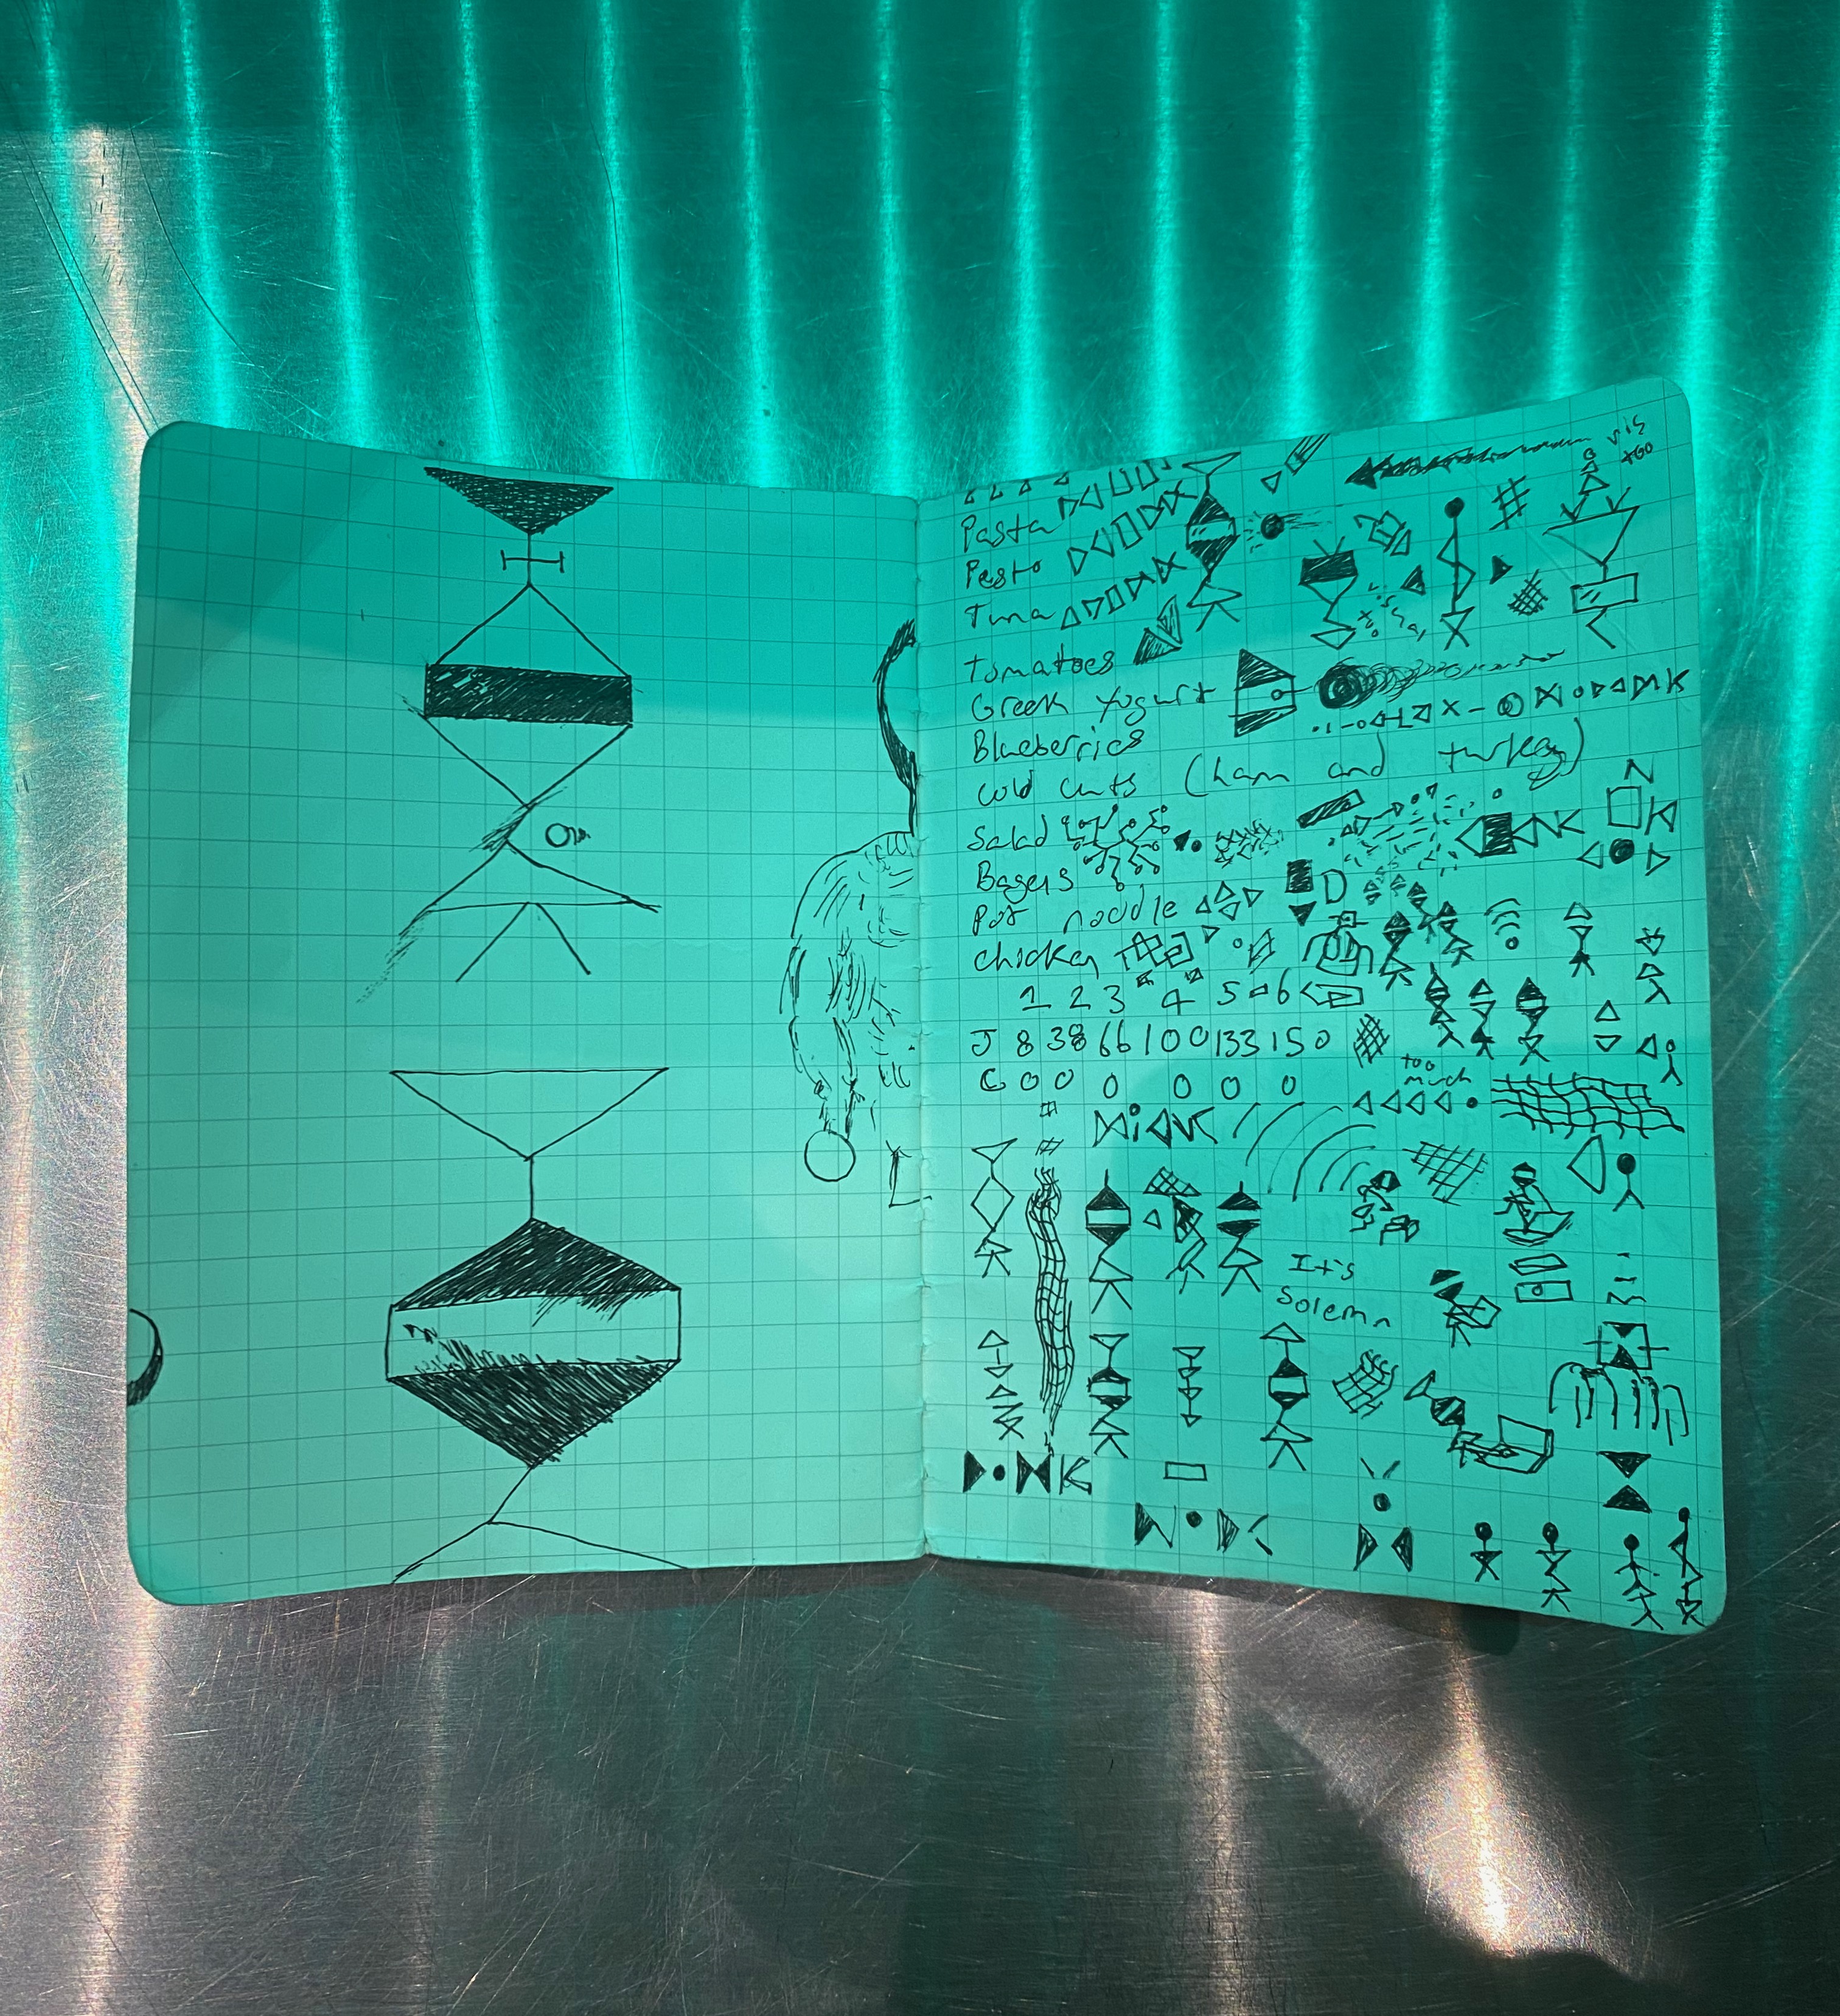 Pasta
Pesto
Tuna
tomatoes
Greek Yogurt
Blueberries
Cold cuts (ham and turkey)
Salad
Bagels
Pot noodle
chicken
1 2 3 4 5 6
J 8 38 66 100 133 150
C 0 0 0 0 0 0
too
much
It's
Solemn